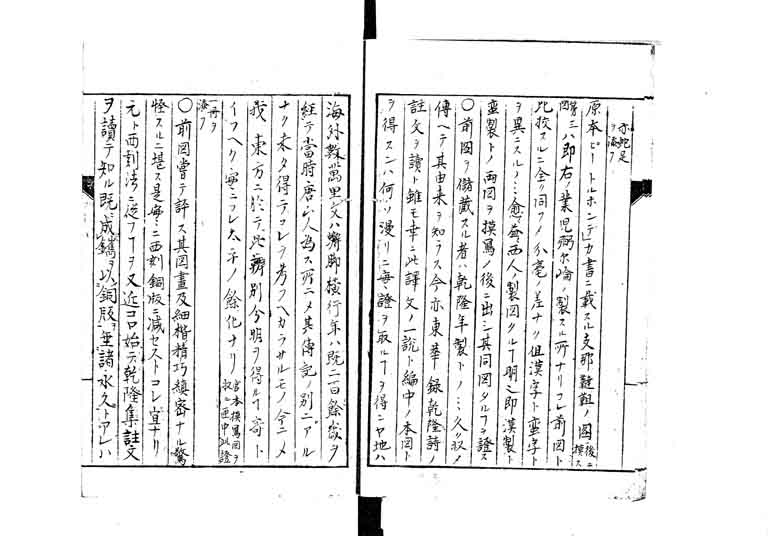 亦蛇足
ヲ添フ
原本「ピートルホンデ」カ書ニ載スル支那韃靼ノ圖後ニ摸ス
図第三ハ即右ノ葉児弼尓崘ノ製スル所ナリコレ前図ト
比挍スルニ全ク同フメ分毫ノ差ナク但漢字ト蛮字ト
ヲ異ニスルノミ愈奎西人ノ製図タルヿ明シ即漢製ト
蛮製トノ両図ヲ摸寫ノ後ニ出シ其同図タルヿヲ證ス
〇前図ヲ儲蔵スル者ハ乾隆年製トノミ久クメ
傳ヘテ其由来ヲ知ラス今亦東華録乾隆詩ノ
註文ヲ讀ト雖モ幸ニ此譯文ノ一説ト編中ノ本図ト
ヲ得スンハ何ソ漫リニ毎證ヲ取ルヿヲ得ニヤ地ハ
海外数萬里文ハ蟹脚横行年ハ既ニ二百餘歳ヲ
経テ當時唐山人為ス所ニメ其傳記ノ別ニアル
ナク未タ得テコレヲ考フヘカラサルモノ今ニメ
我東方ニ於テ此辨別分明ヲ得ルヿ寄ト
イフヘク寔ニコレ太平ノ餘化ナリ官本摸寫図ヲ収ル匣中此證
一冊ヲ添フ
〇前図嘗テ評ス其図畫及細楷精巧縝密ナル驚
怪スルニ堪ス是寔ニ西刻銅版ニ減セストコレ宜ナリ
元ト西刻法ニ従フヿヲ又近コロ始テ乾隆集註文
ヲ讀テ知ル既ニ成鐫ヲ以銅版ヲ垂諸永久トアレハ